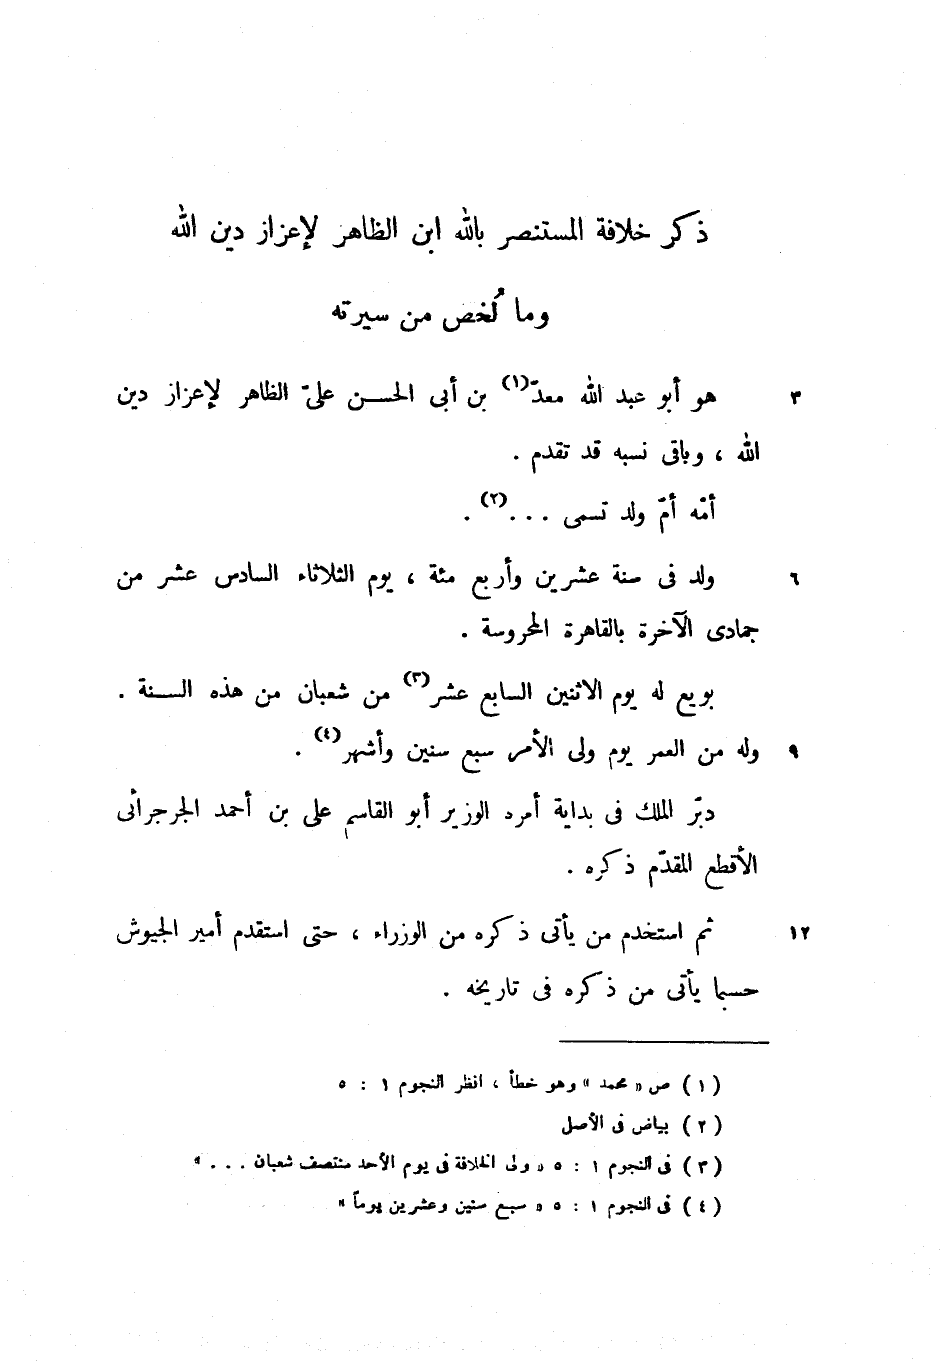 ذكر خلافة المستنصر بالله ابن الظاهر لإعزاز دين الله
وما لُخص من سيرته
٣ هو أبو عبد الله معدّ(١) بن أبى الحسن علىّ الظاهر لإعزاز دين
الله ، وباقى نسبه قد تقدم .
أمّه أمّ ولد تسمى . . .(٢) .
٦ ولد فى سنة عشرين وأربع مئة ، يوم الثلاثاء السادس عشر من
جمادى الآخرة بالقاهرة المحروسة .
بويع له يوم الاثنين السابع عشر(٣) من شعبان من هذه السنة .
٩ وله من العمر يوم ولى الأمر سبع سنين وأشهر(٤) .
دبّر الملك فى بداية أمره الوزير أبو القاسم على بن أحمد الجرجرائى
الأقطع المقدّم ذكره .
١٢ ثم استخدم من يأتى ذكره من الوزراء ، حتى استقدم أمير الجيوش
حسبما يأتى من ذكره فى تاريخه .
(١) ص « محمد » وهو خطأ ، انظر النجوم ١ : ٥
(٢) بياض فى الأصل
(٣) فى النجوم ١ : ٥ « ولى الخلافة فى يوم الأحد منتصف شعبان . . . »
(٤) فى النجوم ١ : ٥ « سبع سنين وعشرين يوماً »